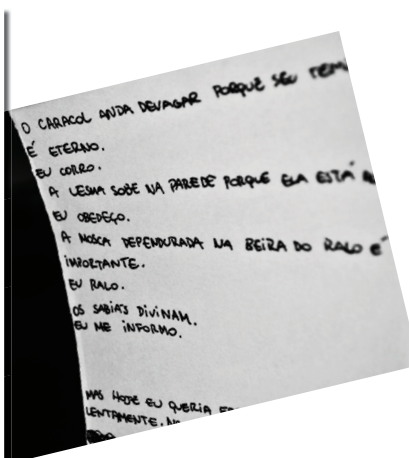 O CARACOL ANDA DEVAGAR PORQUE SEU TEM
É ETERNO.
EU CORRO.
A LESMA SOBE NA PAREDE PORQUE ELA ESTÁ
EU OBEDEÇO.
A MOSCA DEPENDURADA NA BEIRA DO RALO É
IMPORTANTE.
EU RALO.
OS SABIÁS DIVINAM.
EU ME INFORMO.
MAS HOJE EU QUERIA
LENTAMENTE.